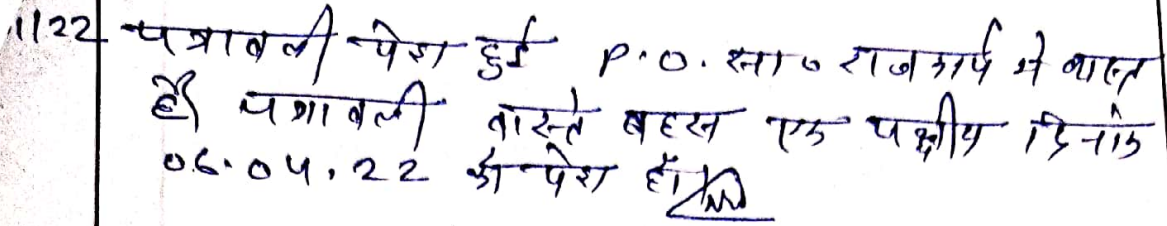 1122 पत्रावली पेश हुई P.O. सा० राजकार्य मे व्यस्त
है पत्रावली वास्ते बहस एक पक्षीय दिनांक
06.04.22 को पेश हो